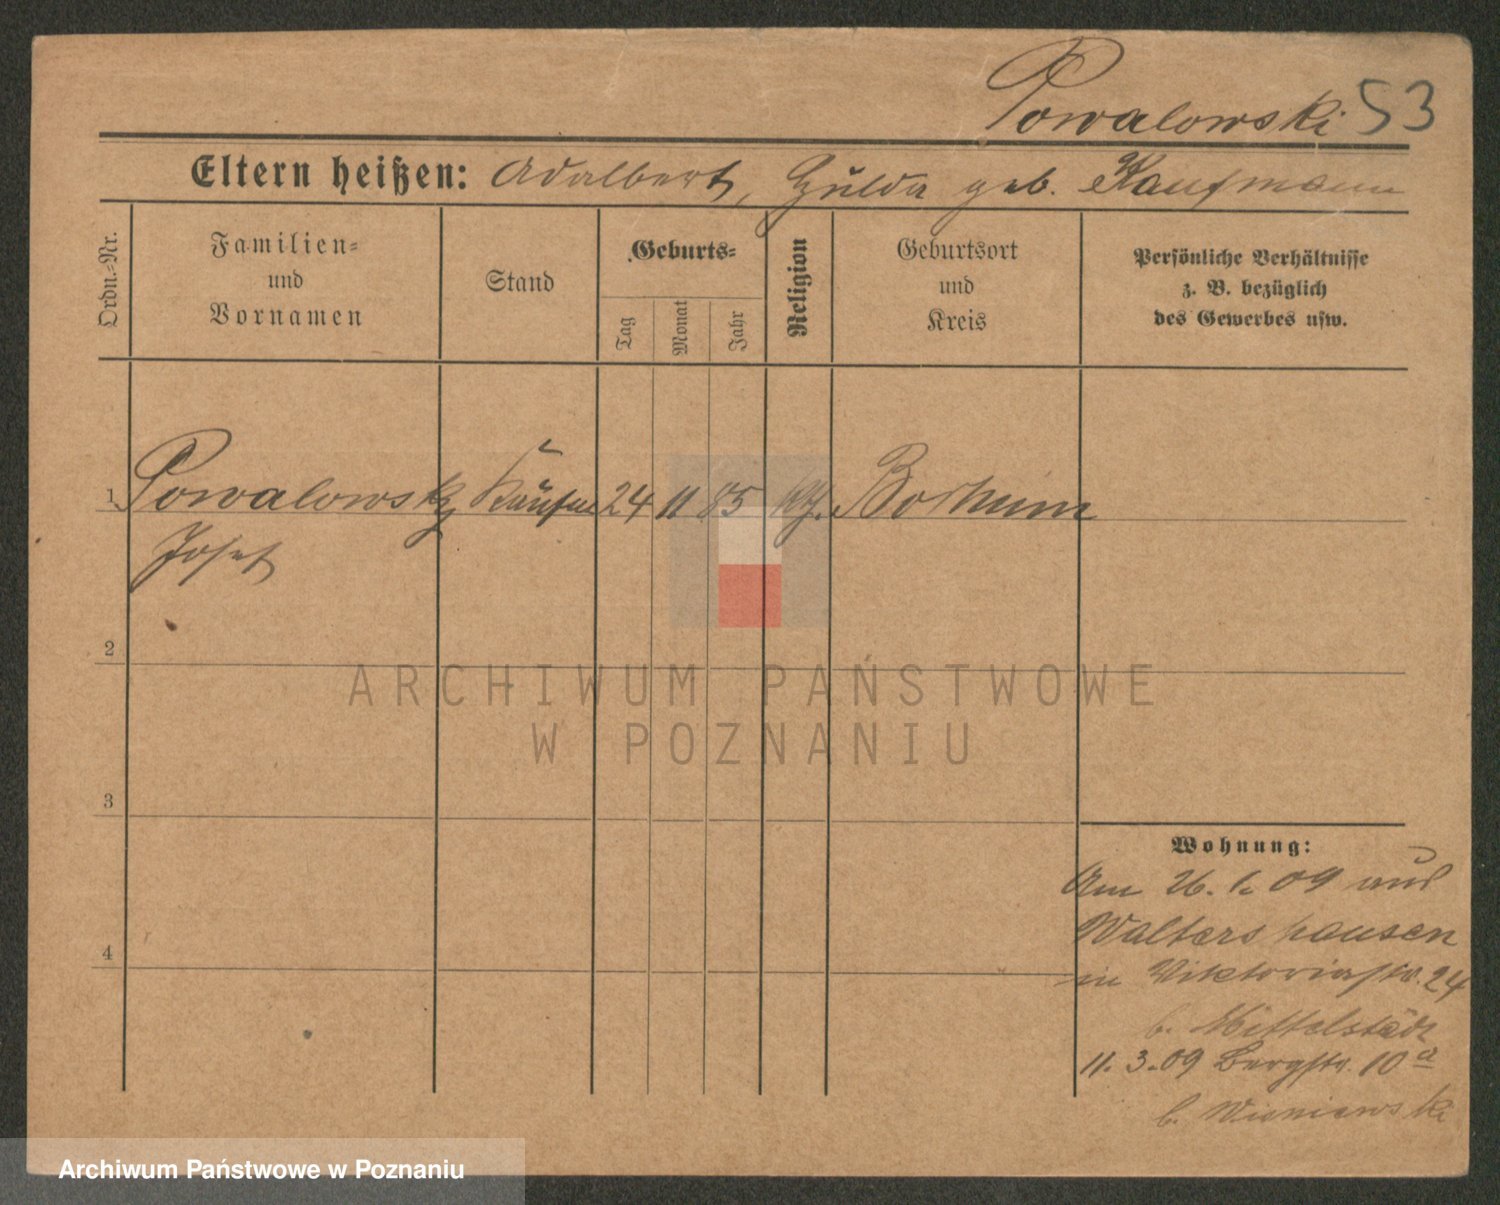 Powalowski 53
Eltern heißen: Adalbert, Hulda geb. Kaufmann
Ordn.-Nr.
Familien-
und
Vornamen
Stand
Geburts-
Tag
Monat
Jahr
Religion
Geburtsort
und
Kreis
Persönliche Verhältnisse
z. B. bezüglich
des Gewerbes usw.
1 Powalowsky 24 11 85 Bochum
Josef
2
ARCHIWUM PAŃSTWOWE
W POZNANIU
3
Wohnung:
Am 26. 1. 09 aus
Waltershausen
4
in Viktoriastr. 24
b. Mittelstädt
11. 3. 09 Bergstr. 10a
b. Wisniewski
Archiwum Państwowe w Poznaniu